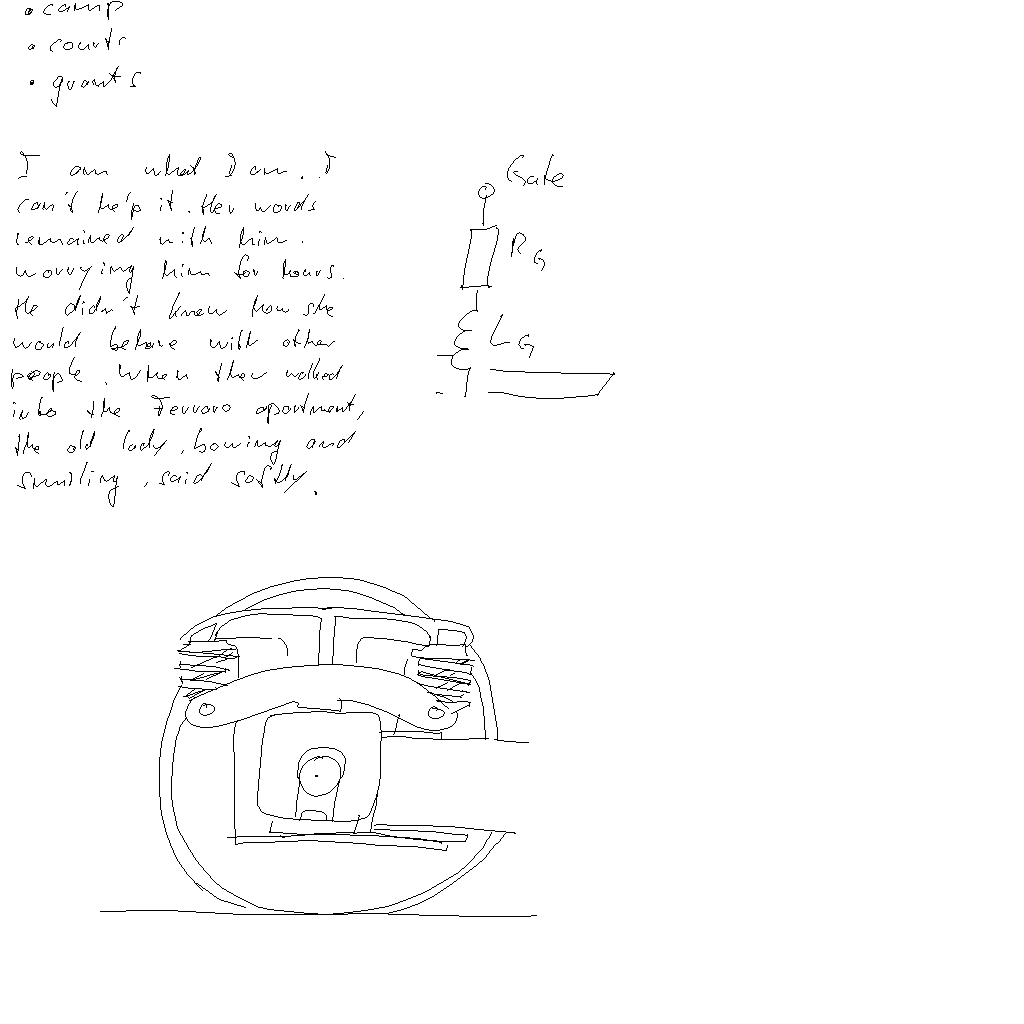 • camp
• courts
• grants
I am what I am. I
can't help it. Her words
remained with him.
worrying him for hours.
He didn't know how she
would behave with other
people. When they walked
into the Ferraro apartment,
the old lady, bowing and
smiling, said softly.
Gate
R G
L G